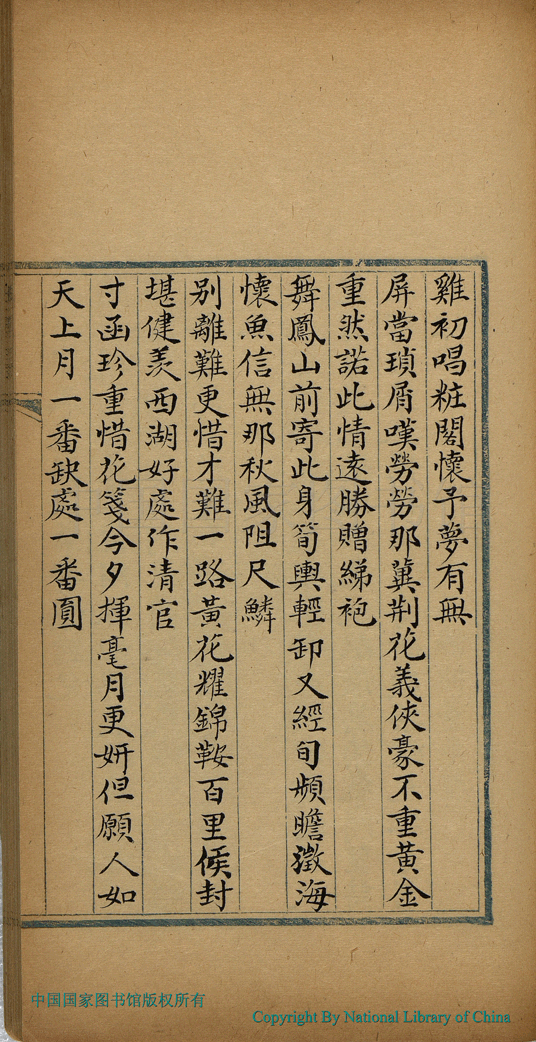 雞初唱粧閣懷予夢有無
屏當瑣屑嘆勞勞那冀荆花義俠豪不重黃金
重然諾此情遠勝贈綈袍
舞鳳山前寄此身筍輿輕卸又經旬頻瞻瀓海
懷魚信無那秋風阻尺鱗
别離難更惜才難一路黃花耀錦鞍百里侯封
堪健羨西湖好處作清官
寸函珍重惜花箋今夕揮毫月更妍但願人如
天上月一番缺處一番圓
中国国家图书馆版权所有
Copyright By National Library of China